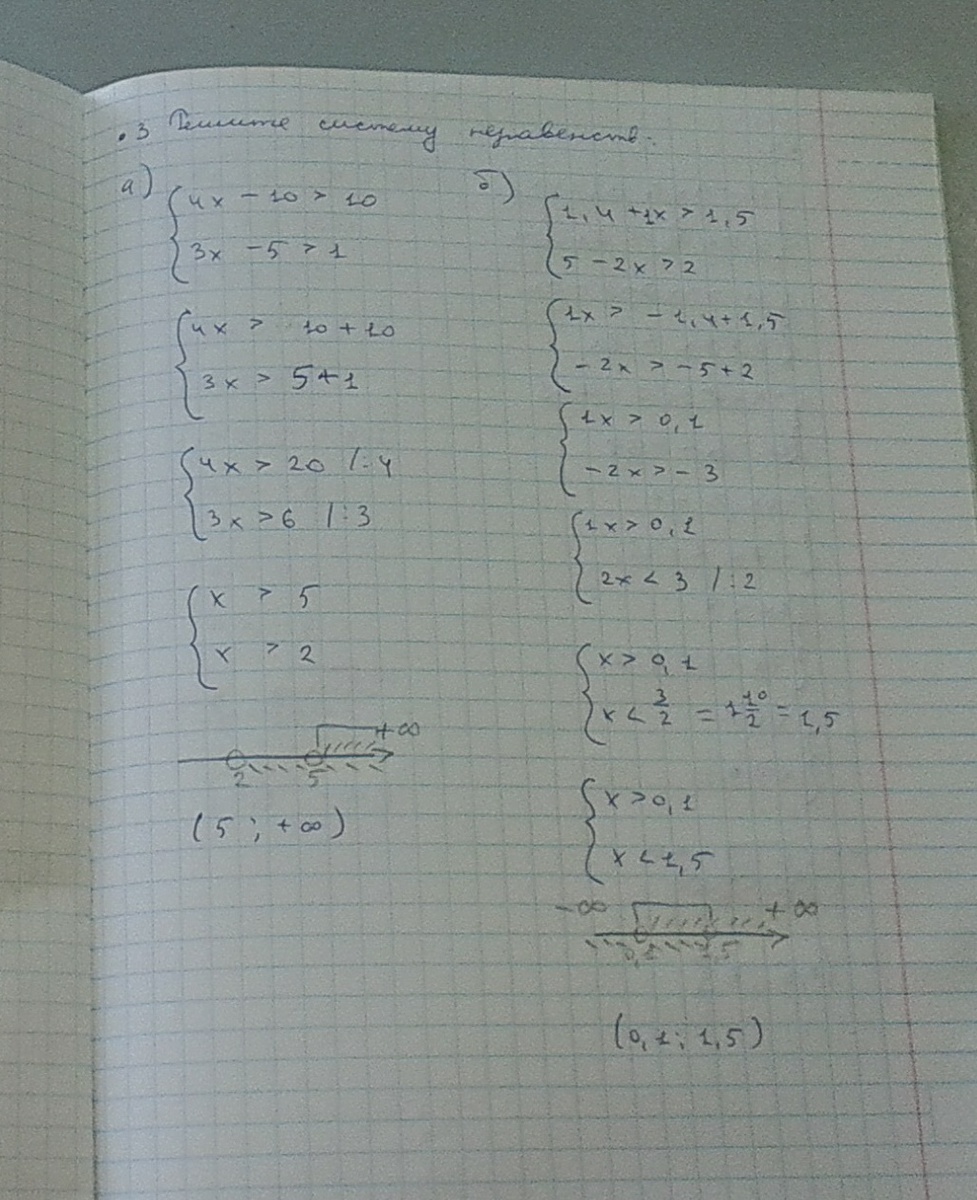 .3 Решите систему неравенств.
а)
4x - 10 > 10
3x - 5 > 1
4x > 10 + 10
3x > 5 + 1
4x > 20 /:4
3x > 6 /:3
x > 5
x > 2
+∞
2 5
(5 ; +∞)
б)
1,4 + 1x > 1,5
5 - 2x > 2
1x > -1,4 + 1,5
-2x > -5 + 2
1x > 0,1
-2x > -3
1x > 0,1
2x < 3 /:2
x > 0,1
x < 3/2 = 1 10/2 = 1,5
x > 0,1
x < 1,5
-∞ +∞
0,1 1,5
(0,1 ; 1,5)